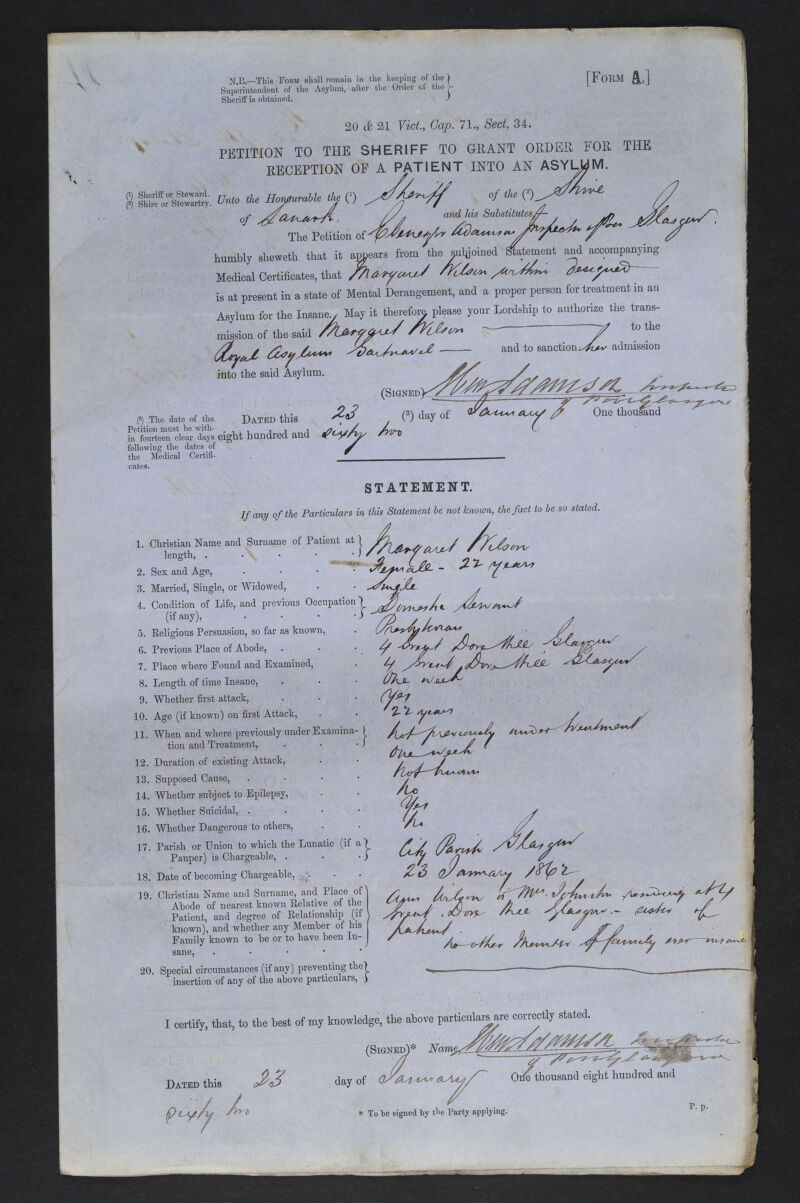 N.B.—This Form shall remain in the keeping of the
Superintendent of the Asylum, after the Order of the
Sheriff is obtained.
[Form A.]
20 & 21 Vict., Cap. 71., Sect, 34.
PETITION TO THE SHERIFF TO GRANT ORDER FOR THE
RECEPTION OF A PATIENT INTO AN ASYLUM.
(1) Sheriff or Steward.
(2) Shire or Stewartry.
Unto the Honourable the (1) Sheriff of the (2) Shire
of Lanark. and his Substitutes
The Petition of Ebenezer Adamson Inspector of Poor Glasgow.
humbly sheweth that it appears from the subjoined Statement and accompanying
Medical Certificates, that Margaret Wilson within designed
is at present in a state of Mental Derangement, and a proper person for treatment in an
Asylum for the Insane. May it therefore please your Lordship to authorize the trans-
mission of the said Margaret Wilson to the
Royal Asylum Gartnavel and to sanction her admission
into the said Asylum.
(Signed) Eben Adamson Inspector
of Poor Glasgow
(3) The date of the
Petition must be with-
in fourteen clear days
following the dates of
the Medical Certifi-
cates.
Dated this 23 (3) day of January One thousand
eight hundred and sixty two
STATEMENT.
If any of the Particulars in this Statement be not known, the fact to be so stated.
1. Christian Name and Surname of Patient at
length, Margaret Wilson
2. Sex and Age, Female - 22 years
3. Married, Single, or Widowed, Single
4. Condition of Life, and previous Occupation
(if any), Domestic Servant
5. Religious Persuasion, so far as known, Presbyterian
6. Previous Place of Abode, 4 Great Dove Hill Glasgow
7. Place where Found and Examined, 4 Great Dove Hill Glasgow
8. Length of time Insane, One week
9. Whether first attack, Yes
10. Age (if known) on first Attack, 22 years
11. When and where previously under Examina-
tion and Treatment, Not previously under treatment
12. Duration of existing Attack, One week
13. Supposed Cause, Not known
14. Whether subject to Epilepsy, No
15. Whether Suicidal, Yes
16. Whether Dangerous to others, No
17. Parish or Union to which the Lunatic (if a
Pauper) is Chargeable, City Parish Glasgow
18. Date of becoming Chargeable, 23 January 1862
19. Christian Name and Surname, and Place of
Abode of nearest known Relative of the
Patient, and degree of Relationship (if
known), and whether any Member of his
Family known to be or to have been In-
sane,
Ann Wilson or Mrs. Johnston residing at 4
Great Dove Hill Glasgow - sister of
patient
no other Member of family ever insane
20. Special circumstances (if any) preventing the
insertion of any of the above particulars,
I certify, that, to the best of my knowledge, the above particulars are correctly stated.
(Signed)* Name, Eben Adamson Inspector
of Poor Glasgow
Dated this 23 day of January One thousand eight hundred and
sixty two
* To be signed by the Party applying.
P. p.